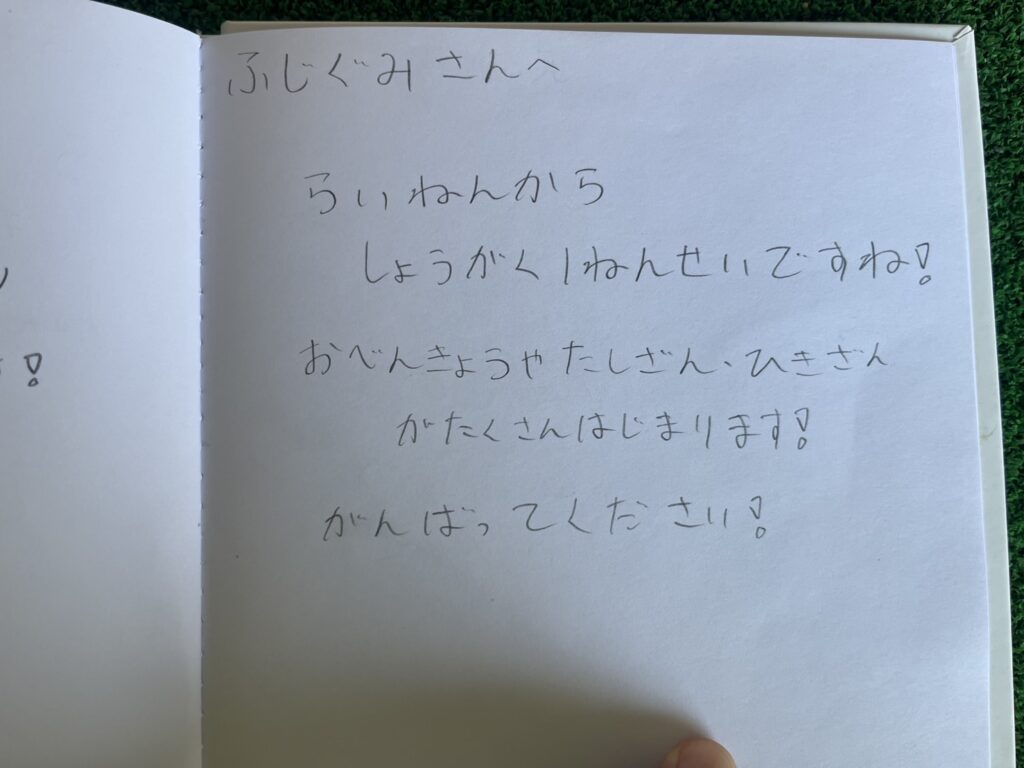 ふじぐみさんへ
らいねんから
しょうがく1ねんせいですね!
おべんきょうやたしざん、ひきざん
がたくさんはじまります!
がんばってください!